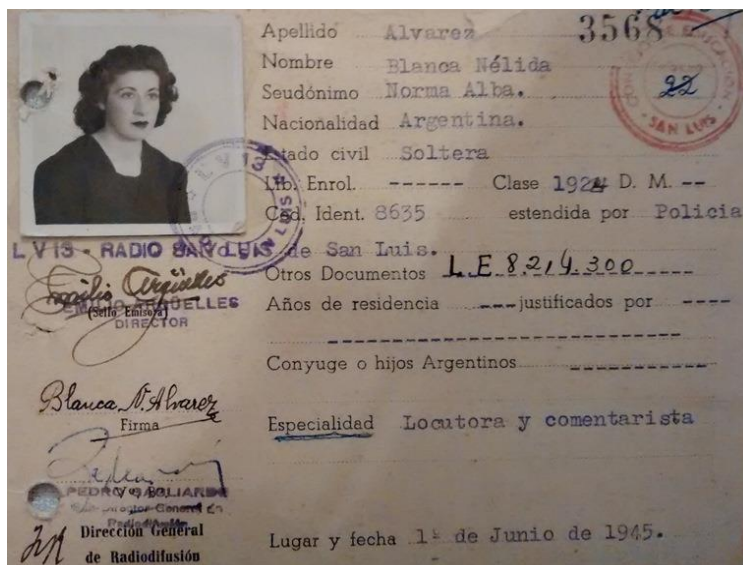 Apellido Alvarez 3568
Nombre Blanca Nélida
Seudónimo Norma Alba.
Nacionalidad Argentina.
Estado civil Soltera
Lib. Enrol. ------ Clase 1924 D. M. --
Ced. Ident. 8635 estendida por Policia
de San Luis.
Otros Documentos L E 8.214.300
Años de residencia --- justificados por ----
Conyuge o hijos Argentinos -----------
Especialidad Locutora y comentarista
Lugar y fecha 1º de Junio de 1945.
EDUCACION
SAN LUIS
22
LV 13
SAN LUIS
L V 13 - RADIO SAN LUIS
Emilio Argüelles
EMILIO ARGÜELLES
(Sello Emisora)
DIRECTOR
Blanca N. Alvarez
Firma
PEDRO
Vº Bº
Director General de
Radiodifusión
Dirección General
de Radiodifusión